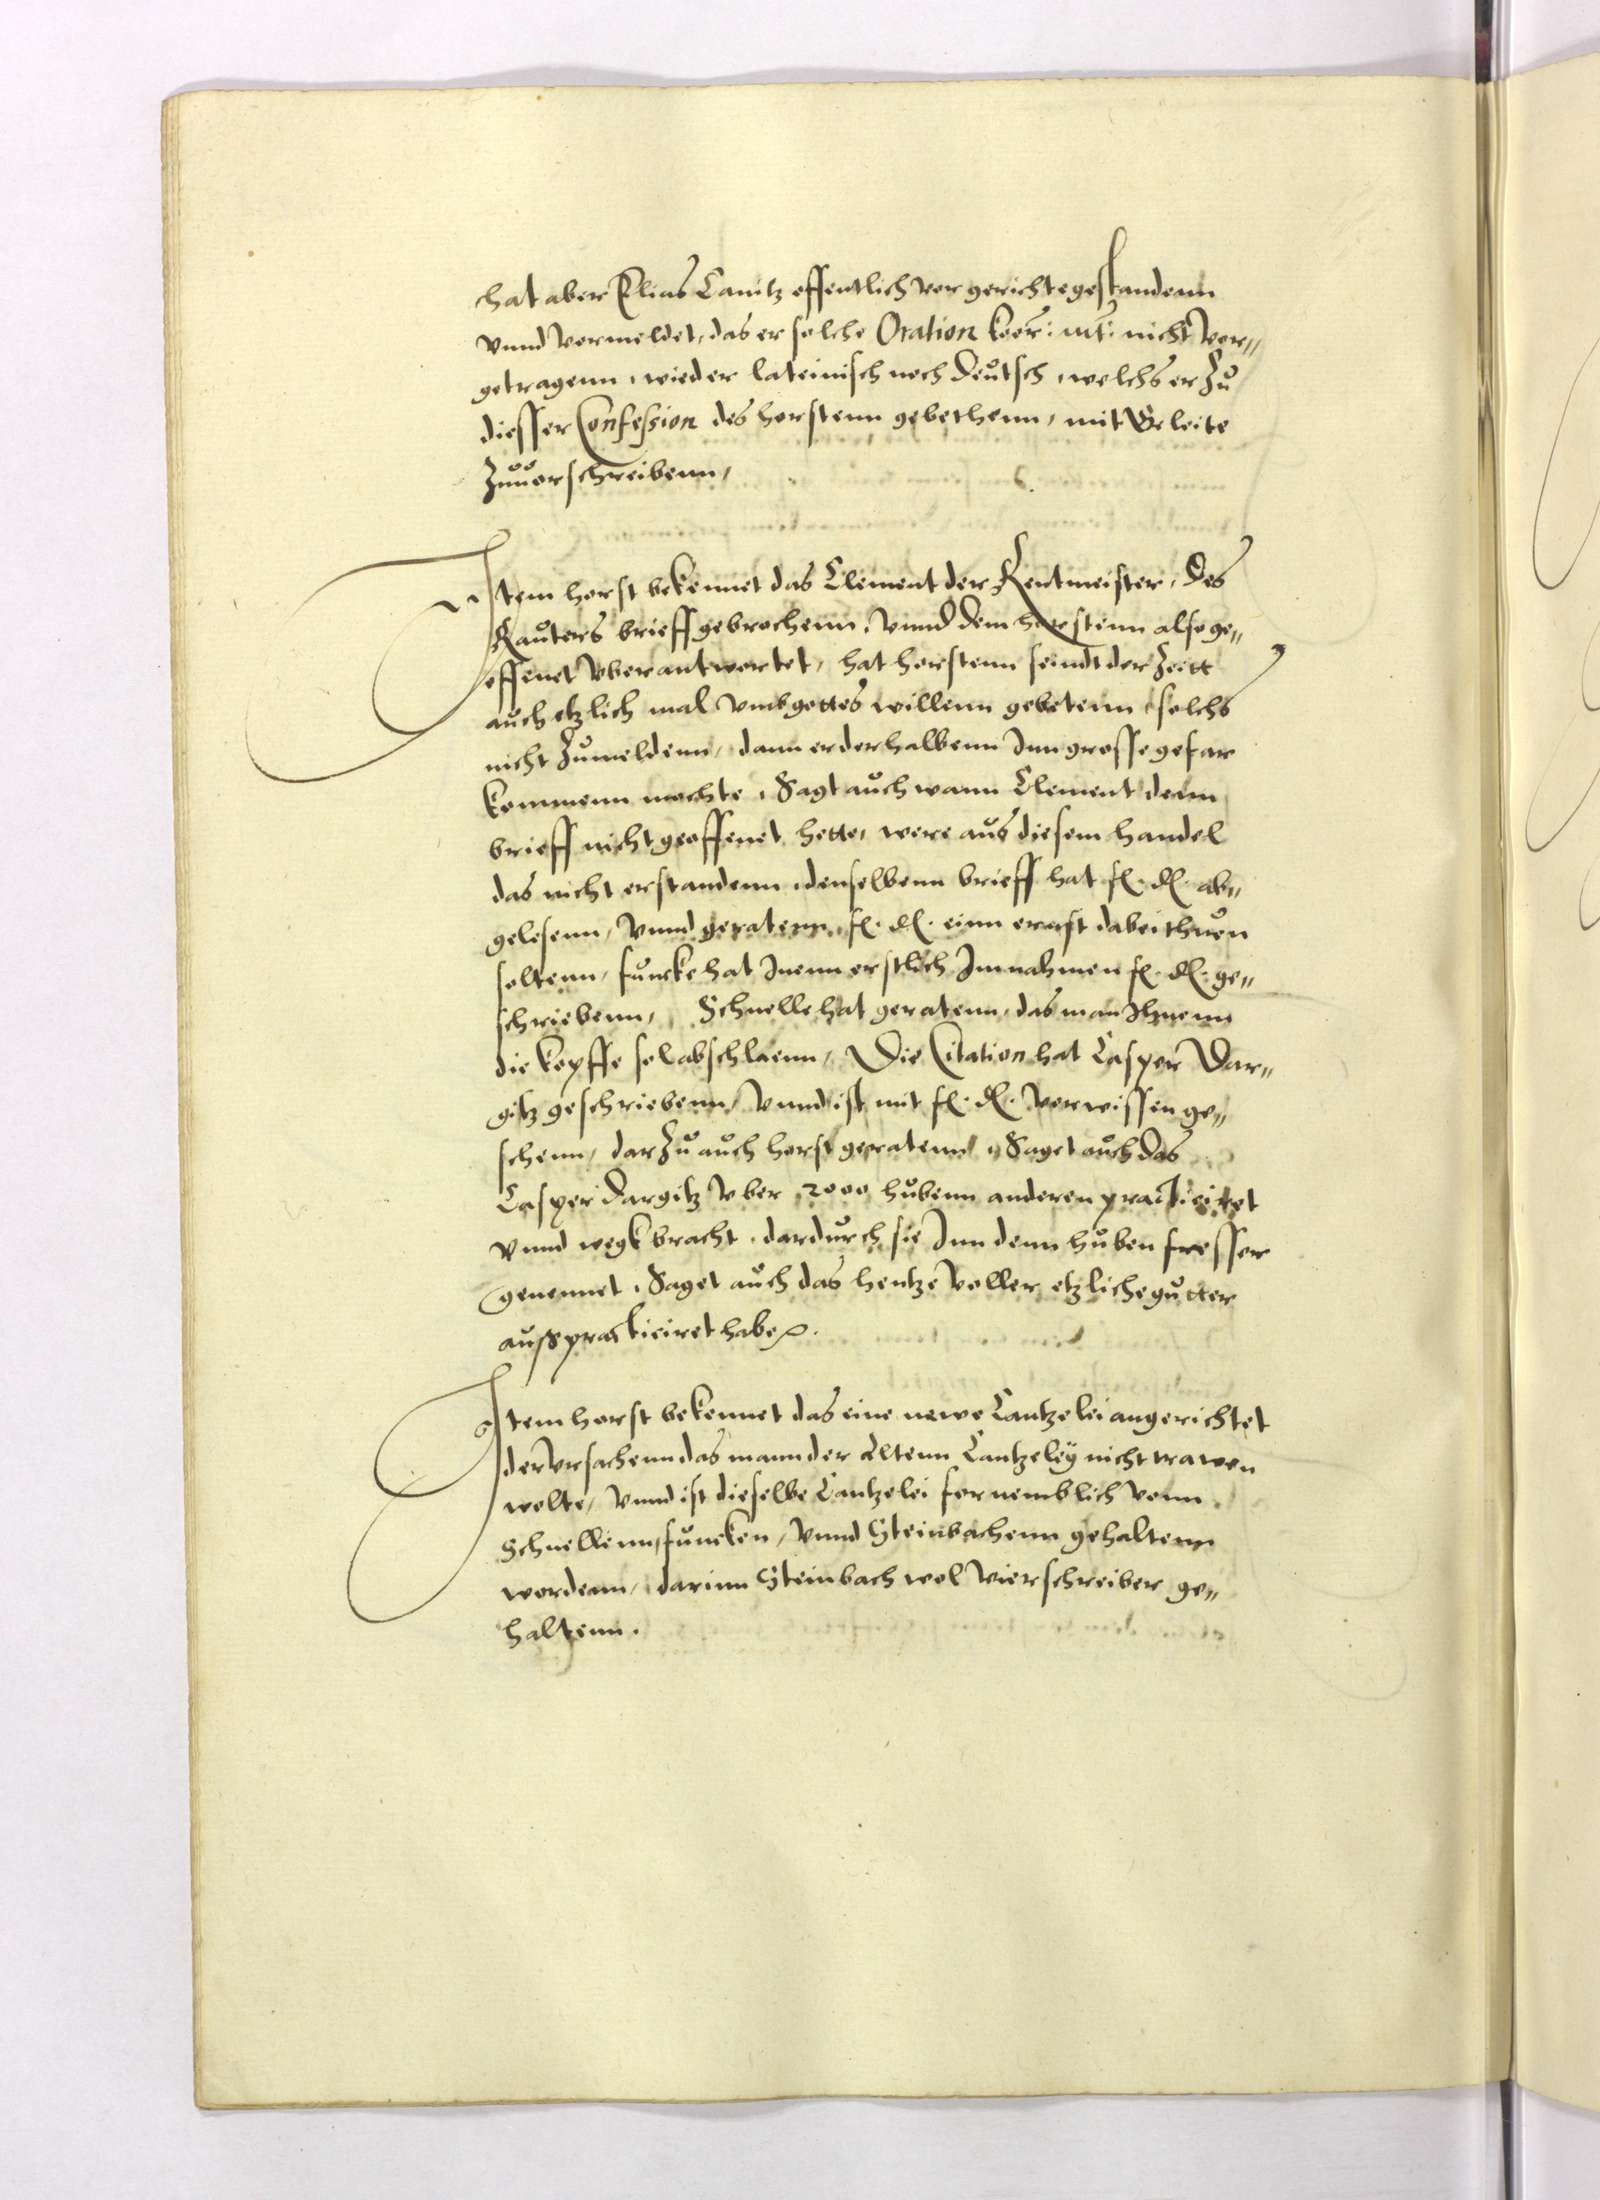 hat aber Elias Canitz offentlich vor gerichte gestandenn
vnnd vormeldet, das er solche Oration koer: mt: nicht vor„
getragenn, wieder lateinisch noch deutsch, welchs er zu
diesser Confession des horstenn gebethenn, mit Geleite
zuuorschreibenn,
Item horst bekennet das Clement der Rentmeister, des
Rauters brieff gebrochenn, vnnd dem horstenn also ge„
offenet vberantwortet, hat horstenn seindt der Zeitt
auch etzlich mal vmb gottes willenn gebetenn solchs
nicht zumeldenn, dann er derhalbenn Inn grosse gefar
kommenn mochte, Sagt auch wann Clement denn
brieff nicht geoffenet hette, were aus diesem handel
das nicht erstandenn, denselbenn brieff hat f. d. ab„
gelesenn, vnnd geratenn, f. d. einn ernst dabei thuen
soltenn, funcke hat Inenn erstlich Im nahmen f. d. ge„
schriebenn, Schnelle hat geratenn, das man Ihnenn
die kopffe sol abschlaenn, Die Citation hat Casper Dar„
gitz geschriebenn, vnnd ist mit f. d. vorwissen ge„
schenn, dar zu auch horst geratenn, Saget auch das
Casper dargitz vber 2000 hubenn anderen practiciret
vnnd wegk bracht, dardurch sie Inn denn huben fresser
genennet, Saget auch das hentze voller etzliche gutter
ausspracticiret habe.
Item horst bekennet das eine newe Cantzelei angerichtet
der vrsachenn das mann der altenn Cantzeleÿ nicht trawen
wolte, vnnd ist dieselbe Cantzelei fornemblich vonn
Schnellenn, funcken, vnnd Steinbachenn gehaltenn
wordenn, darinn Steinbach wol vier schreiber ge„
haltenn.